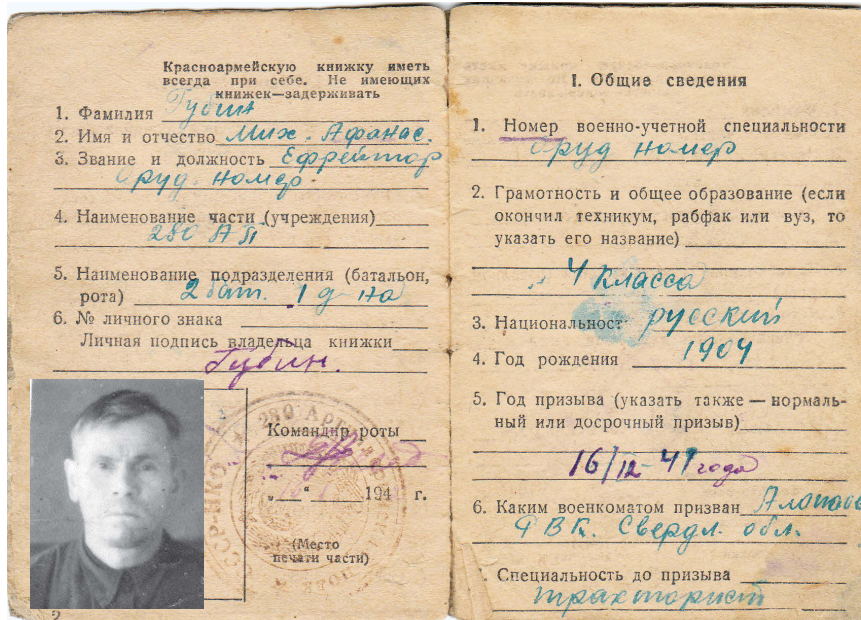 Красноармейскую книжку иметь
всегда при себе. Не имеющих
книжек—задерживать
1. Фамилия Губин
2. Имя и отчество Мих. Афанас.
3. Звание и должность Ефрейтор
Оруд. номер.
4. Наименование части (учреждения)
280 АП
5. Наименование подразделения (батальон,
рота) 2 бат. 1 д-на
6. № личного знака
Личная подпись владельца книжки
Губин.
Командир роты
„ “ 194 г.
(Место
печати части)
280 Артиллерий
СССР-НКО
2
I. Общие сведения
1. Номер военно-учетной специальности
Оруд номер
2. Грамотность и общее образование (если
окончил техникум, рабфак или вуз, то
указать его название)
4 класса
3. Национальност русский
4. Год рождения 1904
5. Год призыва (указать также — нормаль-
ный или досрочный призыв)
16/12-41 года
6. Каким военкоматом призван Алапаев
РВК. Свердл. обл.
Специальность до призыва
тракторист